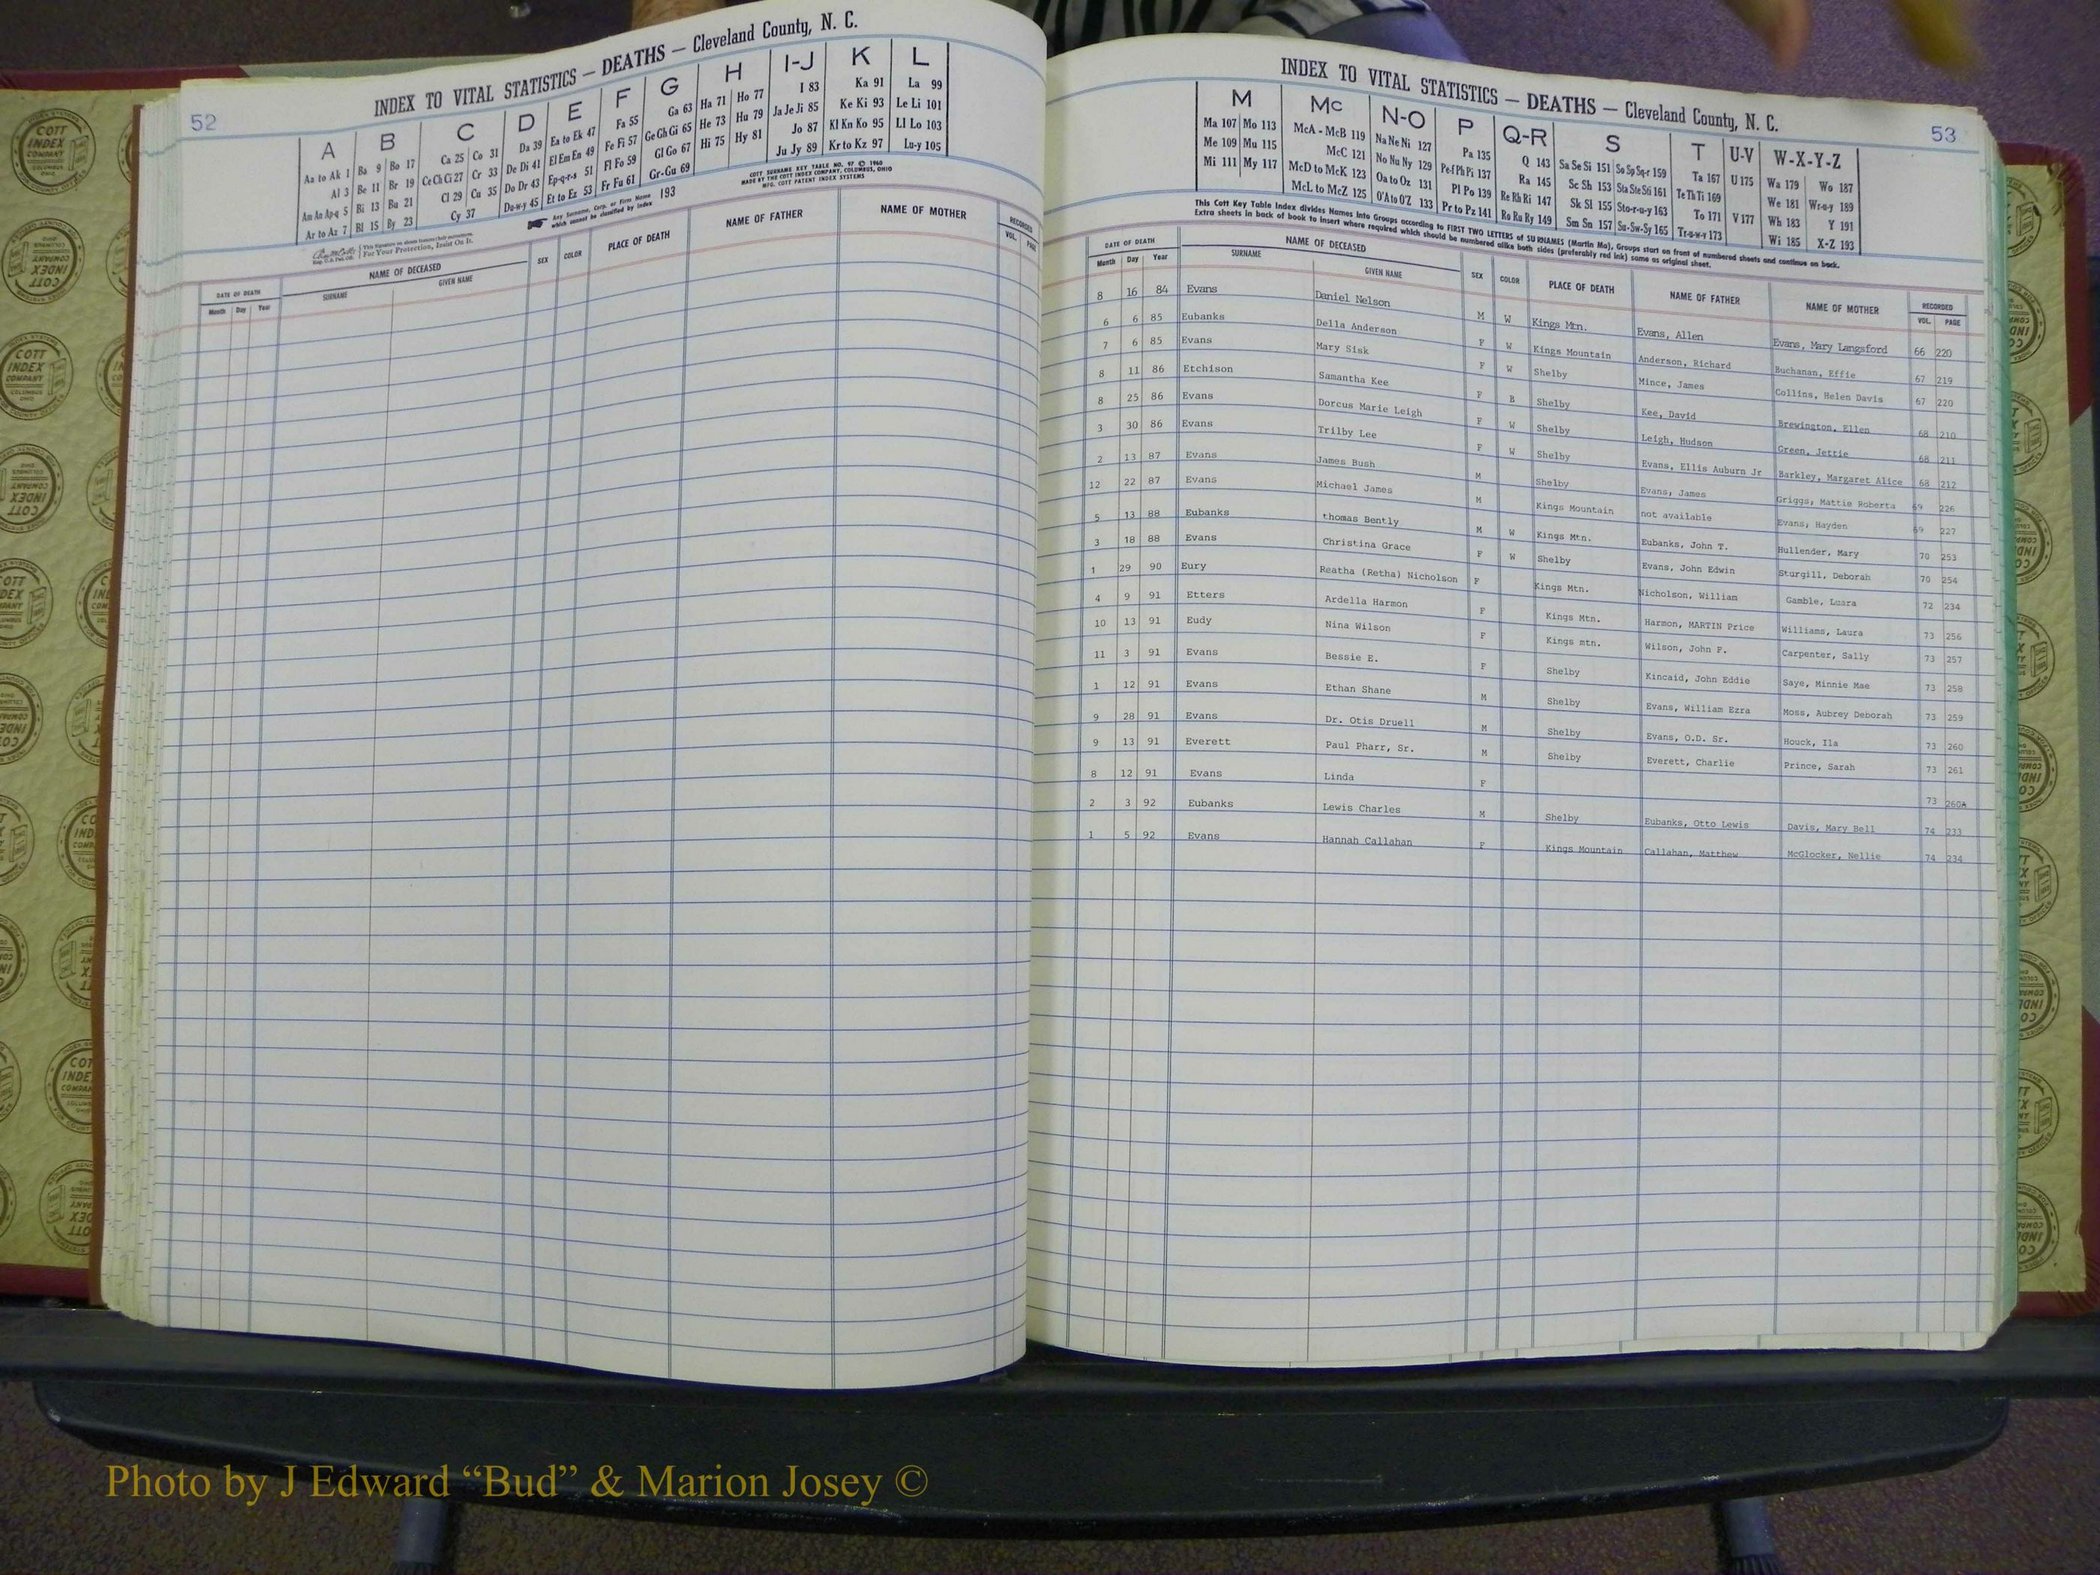 52
INDEX TO VITAL STATISTICS — DEATHS — Cleveland County, N. C.
A B C D E F G H I-J K L
Aa to Ak 1 Ba 9 Bo 17 Ca 25 Co 31 Da 39 Ea to Ek 47 Fa 55 Ga 63 Ha 71 Ho 77 I 83 Ka 91 La 99
Al 3 Be 11 Br 19 Ce Ch Ci 27 Cr 33 De Di 41 El Em En 49 Fe Fi 57 Ge Gh Gi 65 He 73 Hu 79 Ja Je Ji 85 Ke Ki 93 Le Li 101
Am An Ap-q 5 Bi 13 Bu 21 Cl 29 Cu 35 Do Dr 43 Ep-q-r-s 51 Fl Fo 59 Gl Go 67 Hi 75 Hy 81 Jo 87 Kl Kn Ko 95 Ll Lo 103
Ar to Az 7 Bl 15 By 23 Cy 37 Du-w-y 45 Et to Ez 53 Fr Fu 61 Gr-Gu 69 Ju Jy 89 Kr to Kz 97 Lu-y 105
Any Surname, Corp. or First Name which cannot be classified by index 193
COTT SURNAME KEY TABLE NO. 97 © 1960
MADE BY THE COTT INDEX COMPANY, COLUMBUS, OHIO
MFG. COTT PATENT INDEX SYSTEMS
For Your Protection, Insist On It.
DATE OF DEATH NAME OF DECEASED SEX COLOR PLACE OF DEATH NAME OF FATHER NAME OF MOTHER RECORDED
Month Day Year SURNAME GIVEN NAME VOL. PAGE
53
INDEX TO VITAL STATISTICS — DEATHS — Cleveland County, N. C.
M Mc N-O P Q-R S T U-V W-X-Y-Z
Ma 107 Mo 113 McA - McB 119 Na Ne Ni 127 Pa 135 Q 143 Sa Se Si 151 So Sp Sq-r 159 Ta 167 U 175 Wa 179 Wo 187
Me 109 Mu 115 McC 121 No Nu Ny 129 Pe-f Ph Pi 137 Ra 145 Sc Sh 153 Sta Ste Sti 161 Te Th Ti 169 We 181 Wr-u-y 189
Mi 111 My 117 McD to McK 123 Oa to Oz 131 Pl Po 139 Re Rh Ri 147 Sk Sl 155 Sto-r-u-y 163 To 171 V 177 Wh 183 Y 191
McL to McZ 125 O'A to O'Z 133 Pr to Pz 141 Ro Ru Ry 149 Sm Sn 157 Su-Sw-Sy 165 Tr-u-w-y 173 Wi 185 X-Z 193
This Cott Key Table Index divides Names into Groups according to FIRST TWO LETTERS of SURNAMES (Martin Ma), Groups start on front of numbered sheets and continue on back.
Extra sheets in back of book to insert where required which should be numbered alike both sides (preferably red ink) same as original sheet.
DATE OF DEATH NAME OF DECEASED SEX COLOR PLACE OF DEATH NAME OF FATHER NAME OF MOTHER RECORDED
Month Day Year SURNAME GIVEN NAME VOL. PAGE
8 16 84 Evans Daniel Nelson M W Kings Mtn. Evans, Allen Evans, Mary Langsford 66 220
6 6 85 Eubanks Della Anderson F W Kings Mountain Anderson, Richard Buchanan, Effie 67 219
7 6 85 Evans Mary Sisk F W Shelby Mince, James Collins, Helen Davis 67 220
8 11 86 Etchison Samantha Kee F B Shelby Kee, David Brewington, Ellen 68 210
8 25 86 Evans Dorcus Marie Leigh F W Shelby Leigh, Hudson Green, Jettie 68 211
3 30 86 Evans Trilby Lee F W Shelby Evans, Ellis Auburn Jr Barkley, Margaret Alice 68 212
2 13 87 Evans James Bush M Shelby Evans, James Griggs, Mattie Roberta 69 226
12 22 87 Evans Michael James M Kings Mountain not available Evans, Hayden 69 227
5 13 88 Eubanks thomas Bently M W Kings Mtn. Eubanks, John T. Hullender, Mary 70 253
3 18 88 Evans Christina Grace F W Shelby Evans, John Edwin Sturgill, Deborah 70 254
1 29 90 Eury Reatha (Retha) Nicholson F Kings Mtn. Nicholson, William Gamble, Luara 72 234
4 9 91 Etters Ardella Harmon F Kings Mtn. Harmon, MARTIN Price Williams, Laura 73 256
10 13 91 Eudy Nina Wilson F Kings mtn. Wilson, John F. Carpenter, Sally 73 257
11 3 91 Evans Bessie E. F Shelby Kincaid, John Eddie Saye, Minnie Mae 73 258
1 12 91 Evans Ethan Shane M Shelby Evans, William Ezra Moss, Aubrey Deborah 73 259
9 28 91 Evans Dr. Otis Druell M Shelby Evans, O.D. Sr. Houck, Ila 73 260
9 13 91 Everett Paul Pharr, Sr. M Shelby Everett, Charlie Prince, Sarah 73 261
8 12 91 Evans Linda F 73 260A
2 3 92 Eubanks Lewis Charles M Shelby Eubanks, Otto Lewis Davis, Mary Bell 74 233
1 5 92 Evans Hannah Callahan F Kings Mountain Callahan, Matthew McGlocker, Nellie 74 234
Photo by J Edward “Bud” & Marion Josey ©